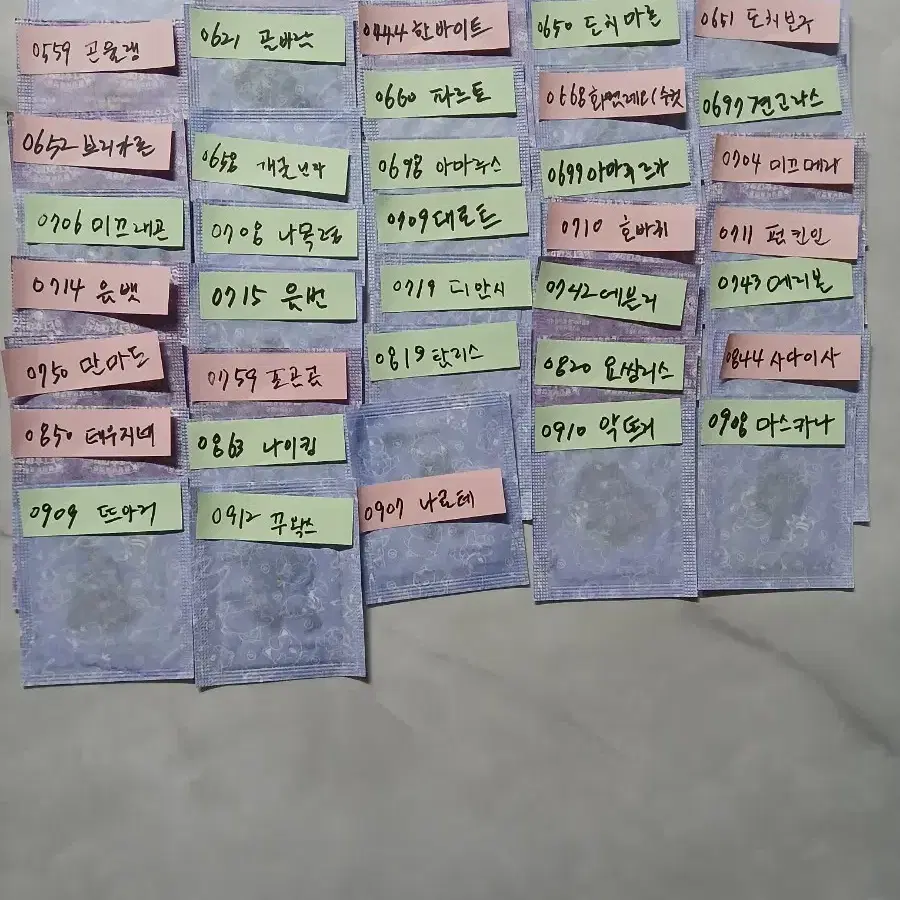 0559 곤율랭
0621
0444 한바이트
0650 도치마론
0651 도치보구
0660 파르토
0668 화염레오(수컷)
0697 견고라스
0652 브리가론
0658 개굴닌자
0698 아마루스
0699 아마루르가
0704 미끄메라
0706 미끄래곤
0708 나목령
0709 대로트
0710 호바귀
0711 펌킨인
0714 음뱃
0715 음번
0719 디안시
0742 에블리
0743 에리본
0750 만마드
0759 포곰곰
0819 탐리스
0820 요씽리스
0844 사다이사
0850 태우지네
0863 나이킹
0910 악뜨거
0908 마스카나
0909 뜨아거
0912 꾸왁스
0907 나로테